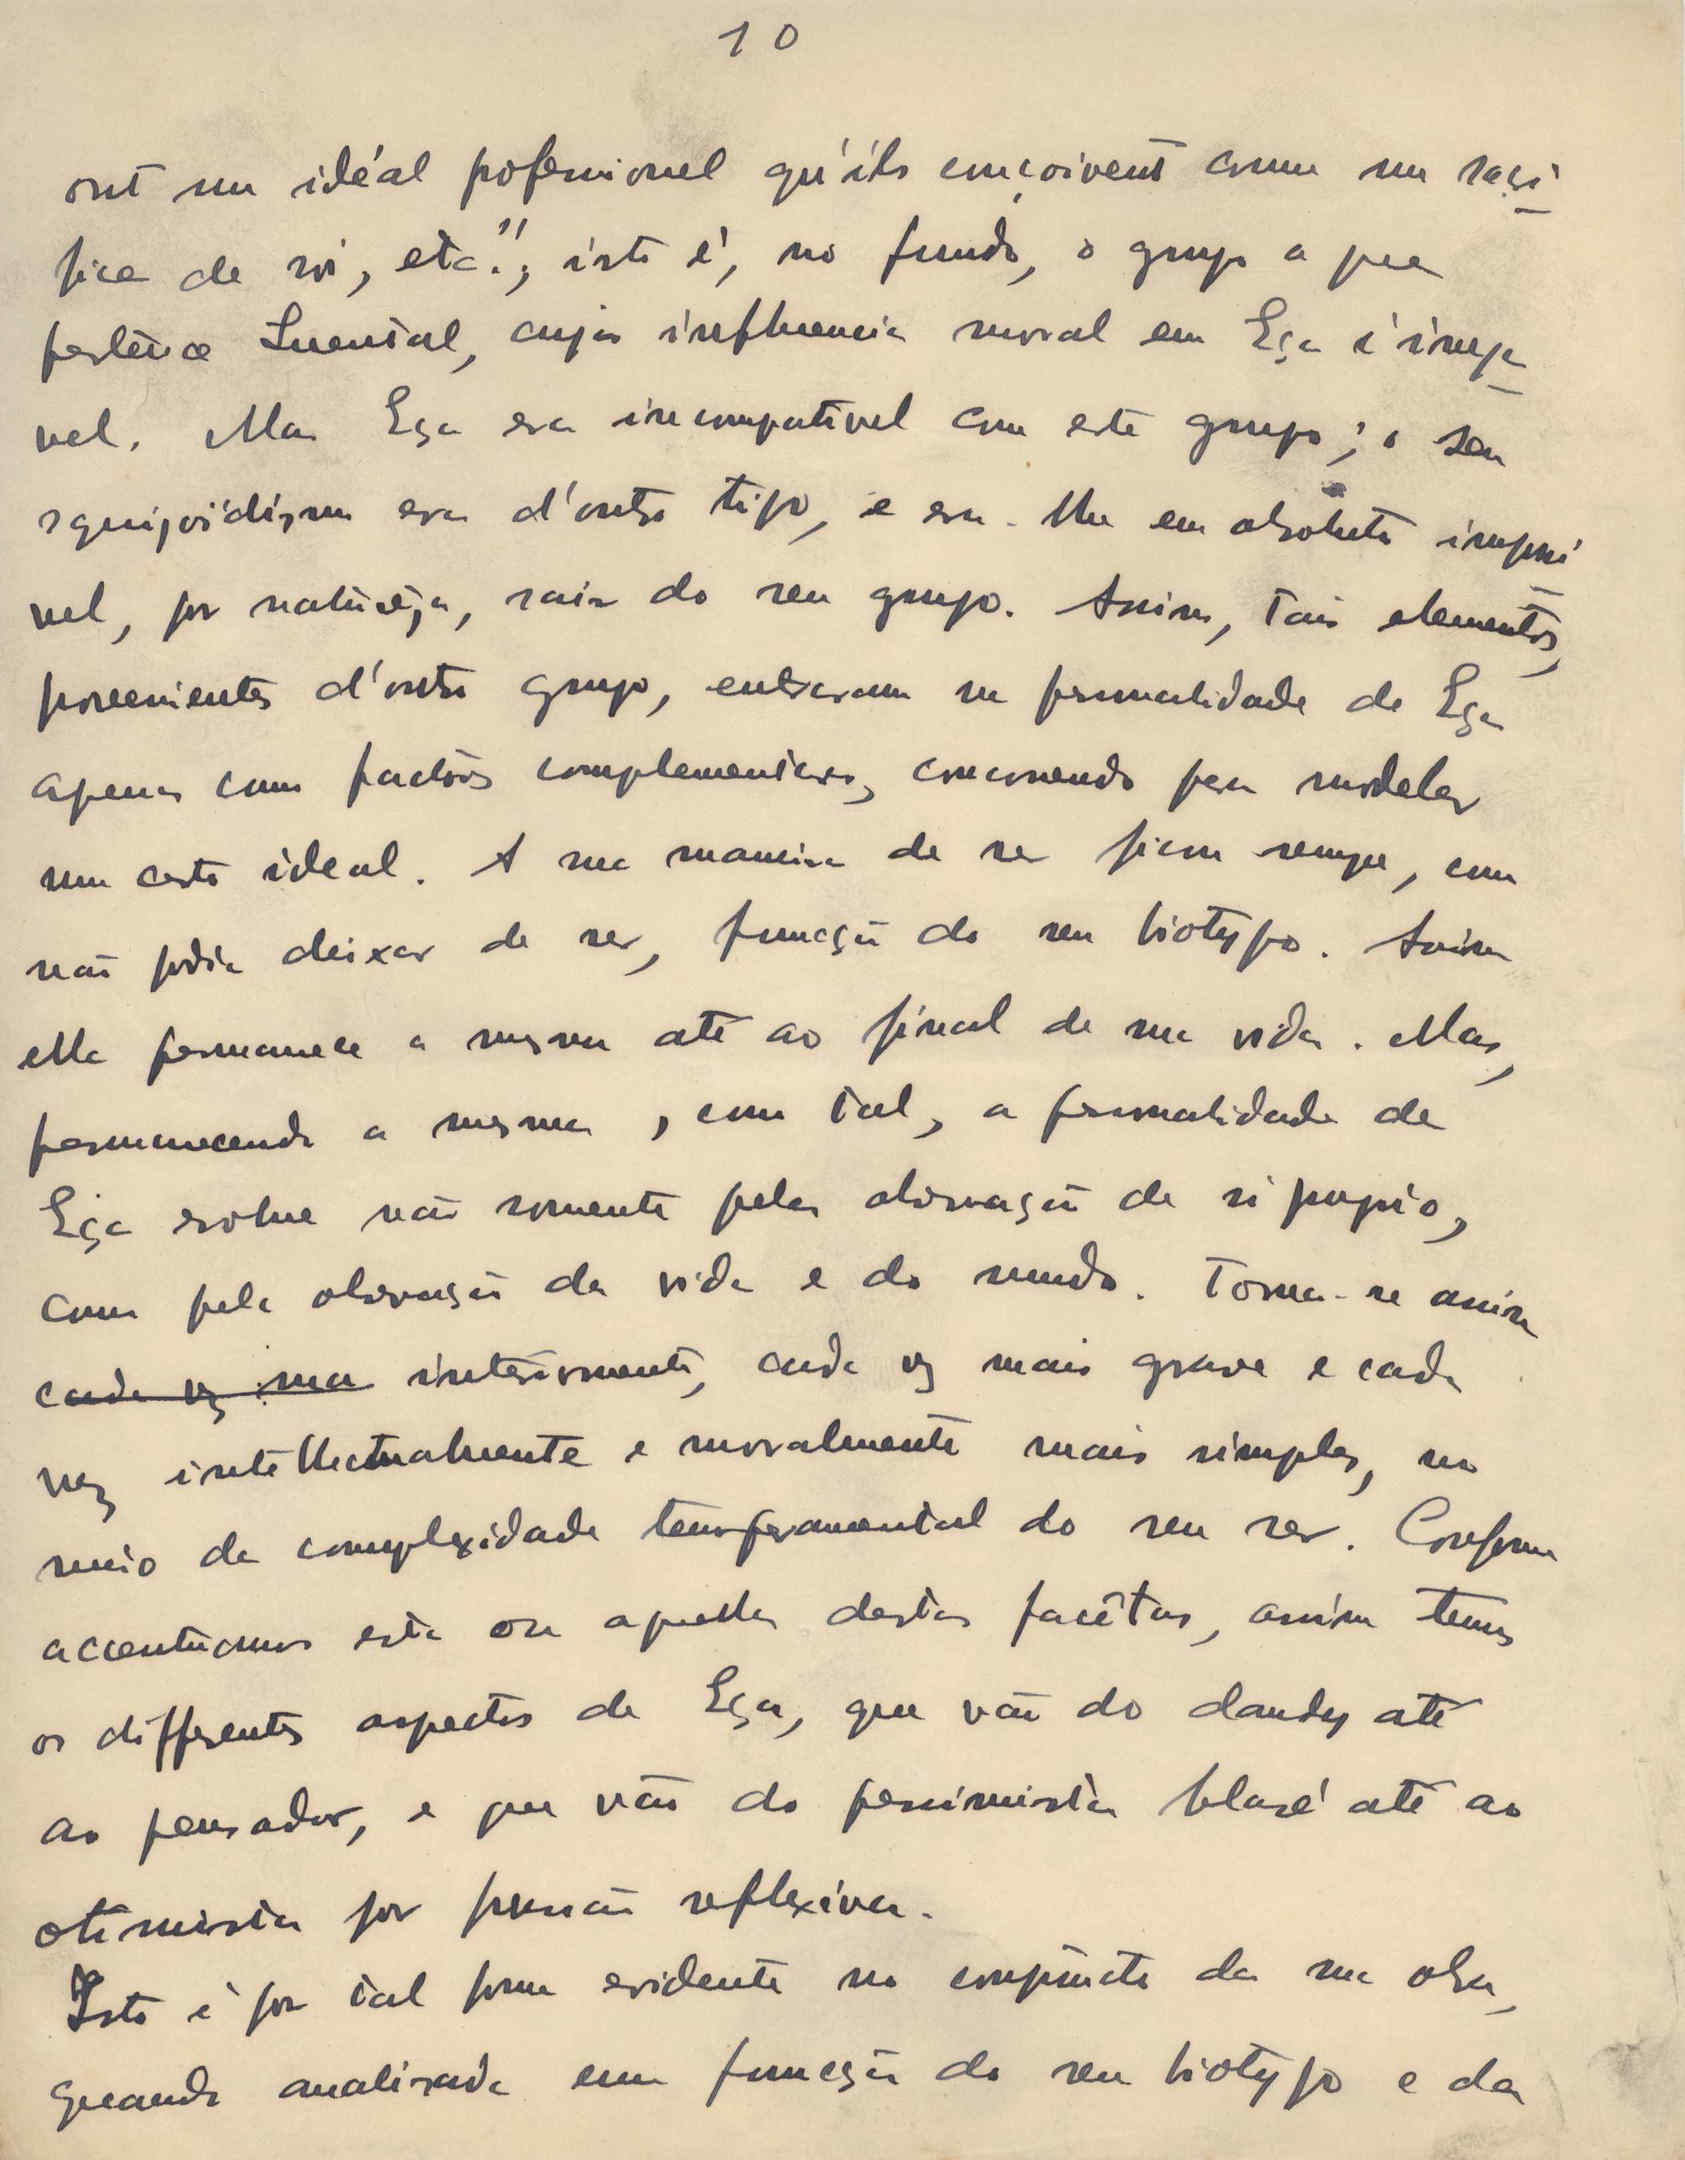 10
ont un idéal professionel qu'ils conçoivent comme un sacri
fice de soi, etc.", isto é, no fundo, o grupo a que
pertence Quental, cuja influencia moral em Eça é inega
vel. Mas Eça era incompativel com este grupo; o seu
squizoidismo era d'outro tipo, e era-lhe em absoluto impossi
vel, por naturêza, sair do seu grupo. Assim, tais elementos,
provenientes d'outro grupo, entraram na personalidade de Eça
apenas como factôres complementares, concorrendo para modelar
um certo ideal. A sua maneira de ser ficou sempre, como
não podia deixar de ser, funcção do seu biotypo. Assim
ella permanece a mesma até ao final de sua vida. Mas,
permanecendo a mesma, como tal, a personalidade de
Eça evolue não somente pela observação de si proprio,
como pela observação da vida e do mundo. Torna-se assim
cada vez mai interiormente, cada vez mais grave e cada
vez intellectualmente e moralmente mais simples, no
meio da complexidade temperamental do seu ser. Conforme
accentuamos esta ou aquella destas facêtas, assim temos
os differentes aspectos de Eça, que vão do dandy até
ao pensador, e que vão do pessimista blasé até ao
otimista por pressão reflexiva.
Isto é por tal forma evidente no conjuncto da sua obra,
quando analisada em funcção do seu biotypo e da